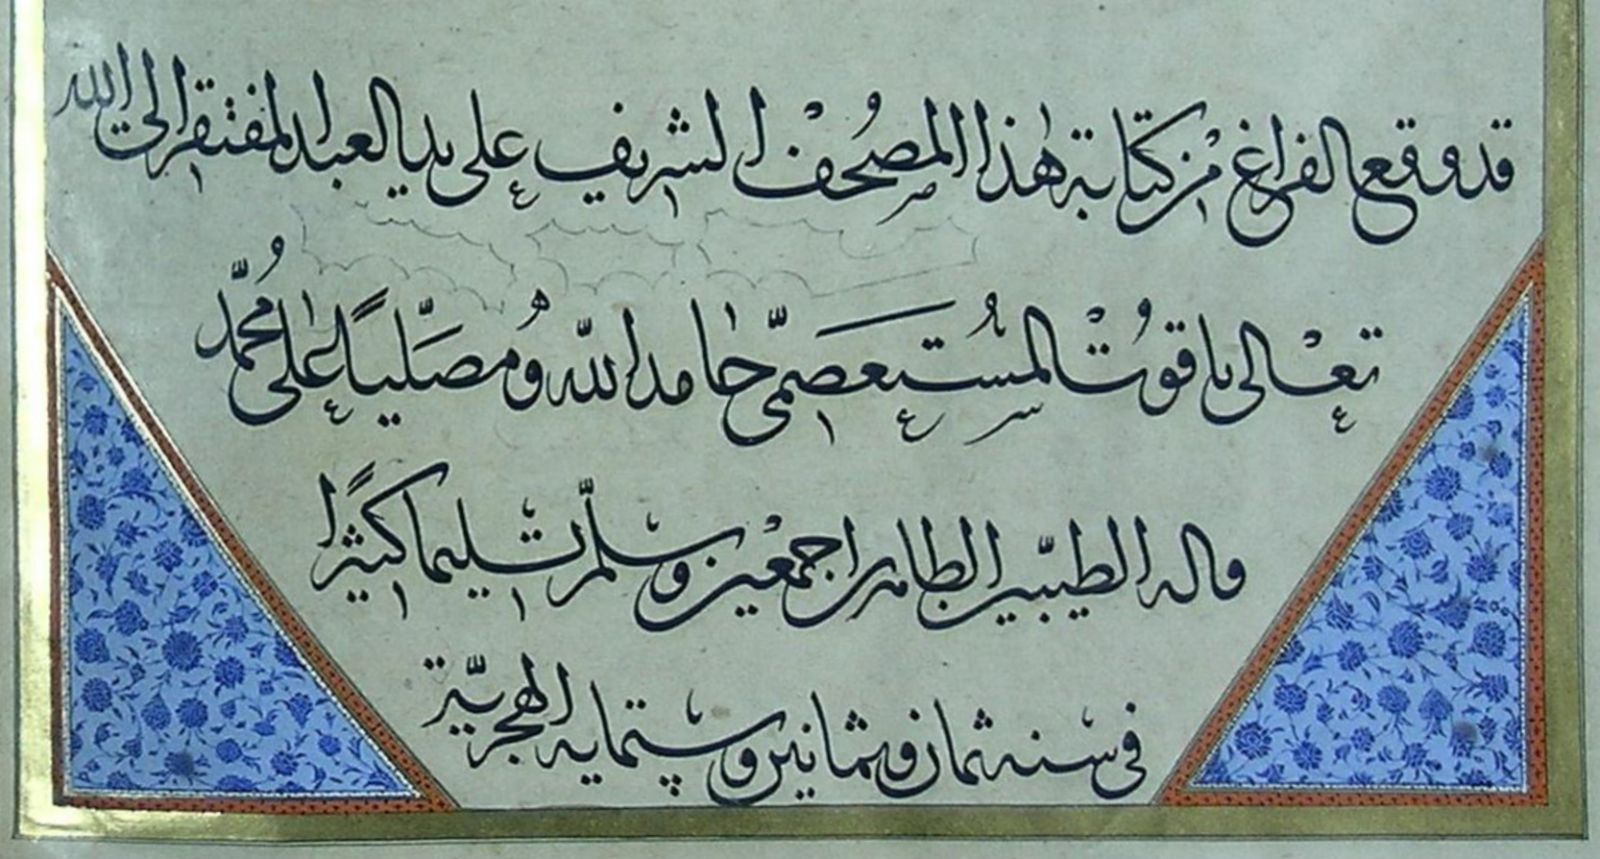 قد وقع الفراغ من كتابة هٰذا المصحف الشريف على يد العبد المفتقر الى الله
تعالى ياقوت المستعصمّي حامدا للّه ومصلّياً على محمّد
واله الطيّبين الطاهرين اجمعين وسلّم تسليما كثيراً
فى سنه ثمان وثمانين وستمايه الهجريّة